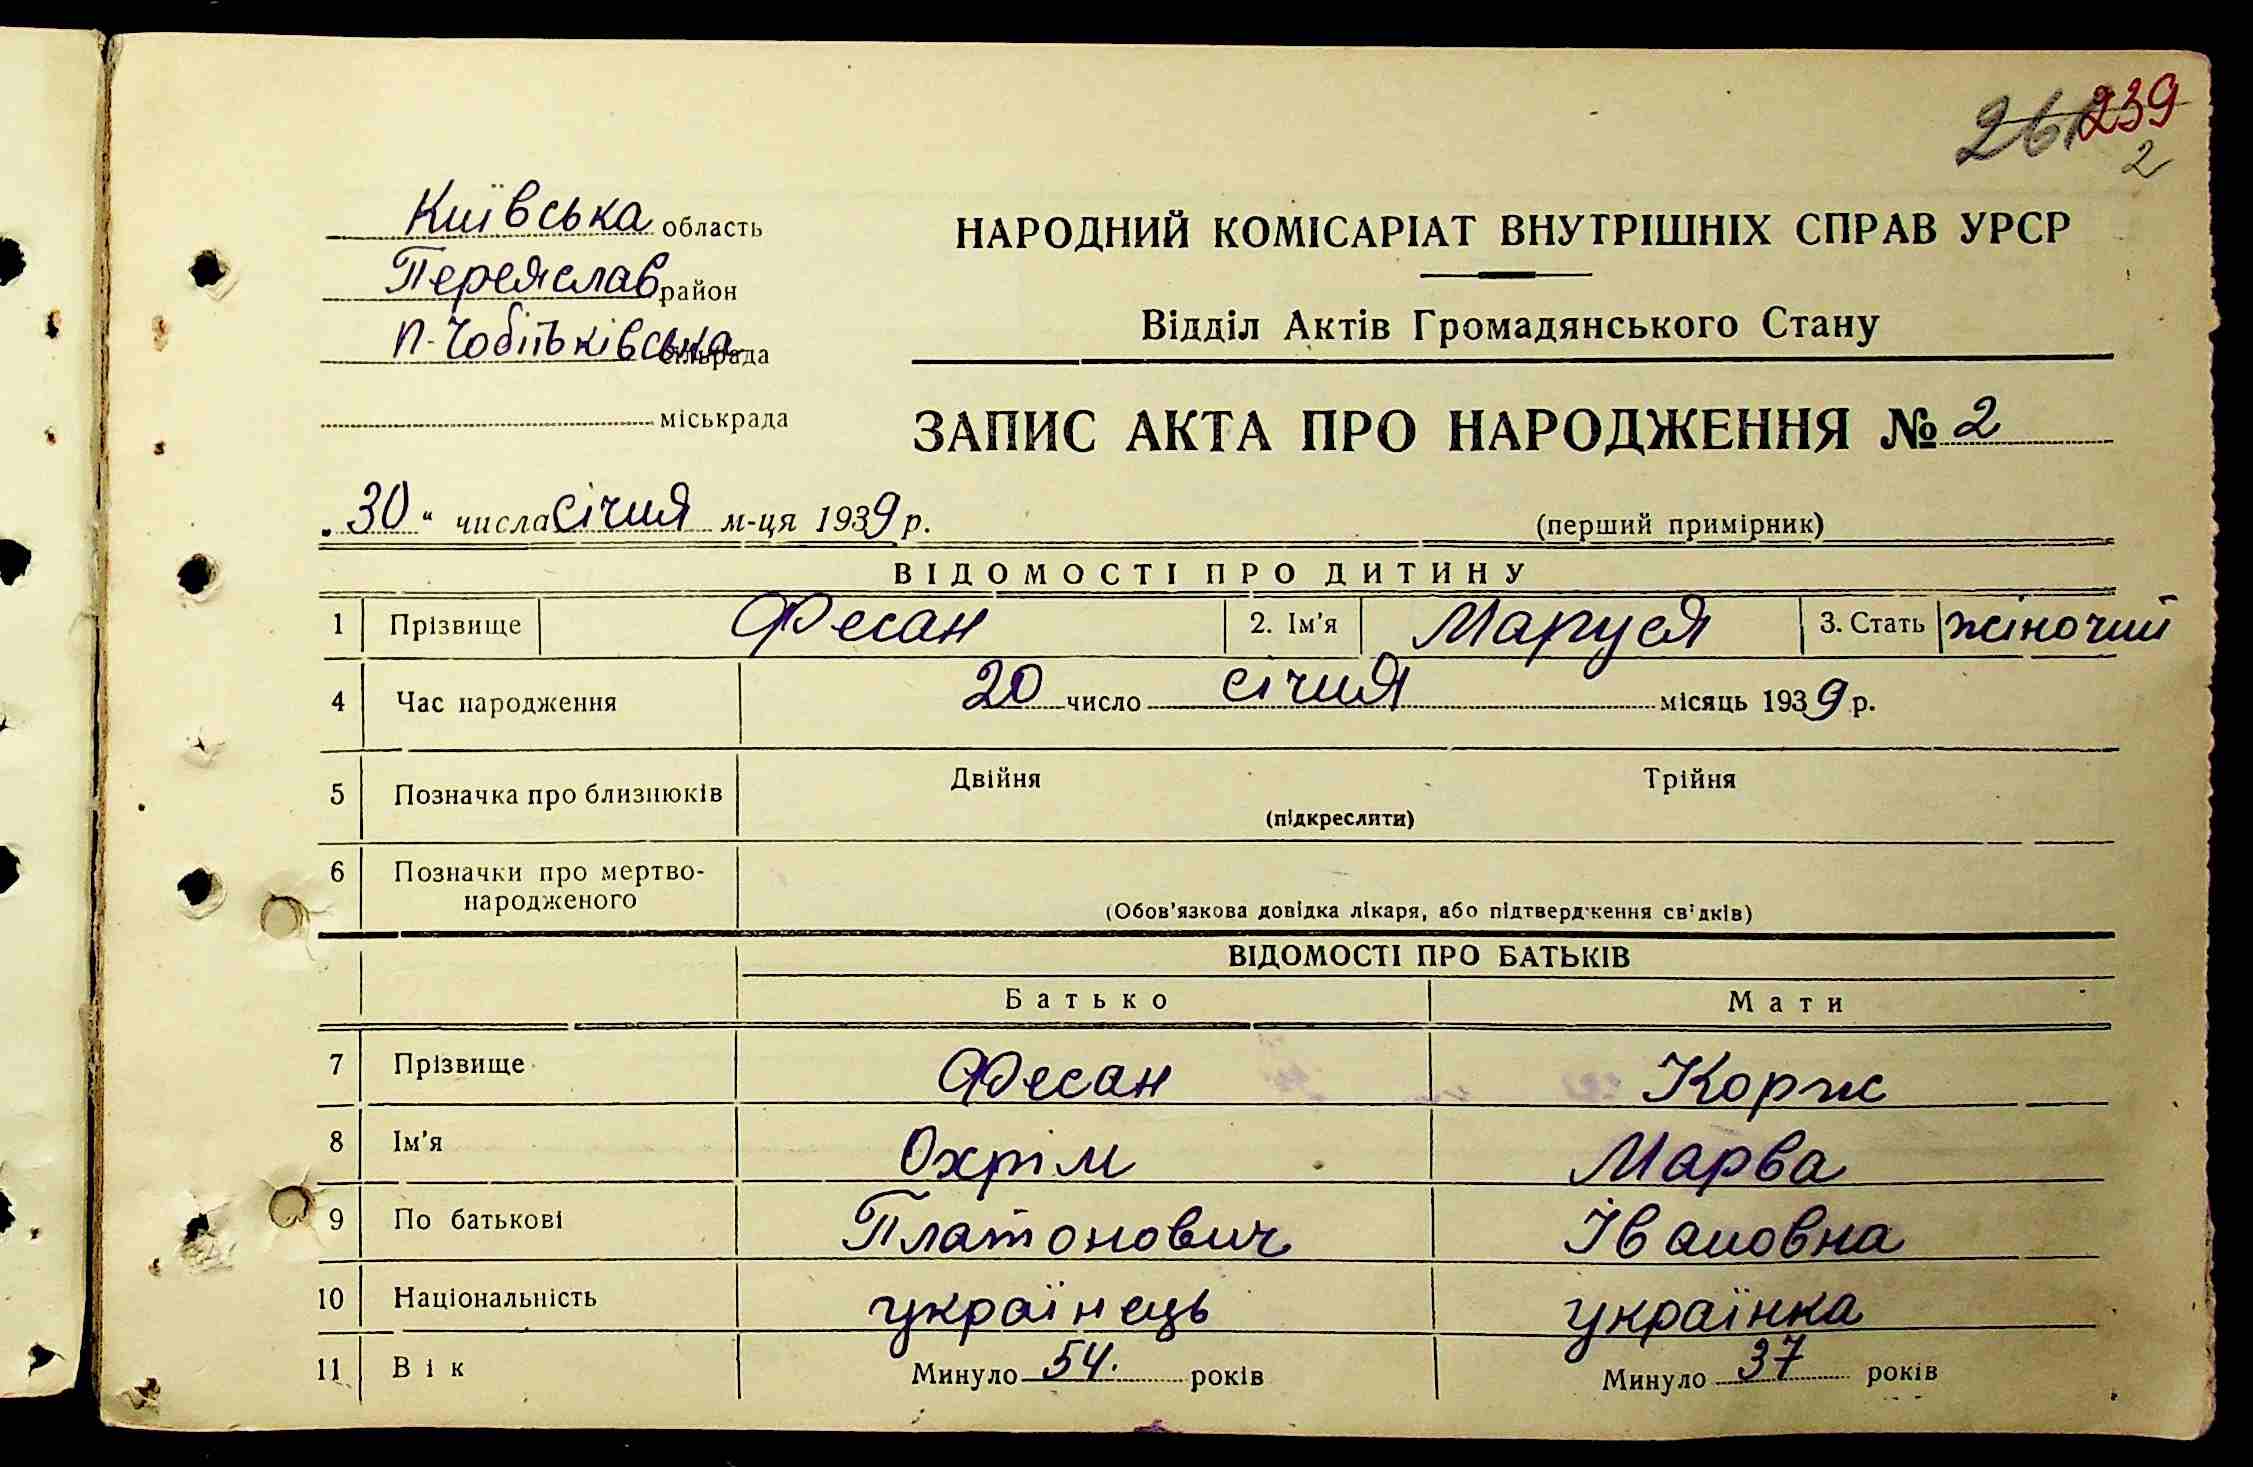 261 239
2
Київська область
Переяслав район
П-Чобітьківська сільрада
міськрада
НАРОДНИЙ КОМІСАРІАТ ВНУТРІШНІХ СПРАВ УРСР
Відділ Актів Громадянського Стану
ЗАПИС АКТА ПРО НАРОДЖЕННЯ № 2
„30“ числа січня м-ця 1939 р.
(перший примірник)
ВІДОМОСТІ ПРО ДИТИНУ
1 Прізвище Фесан 2. Ім'я Маруся 3. Стать жіночий
4 Час народження 20 число січня місяць 1939 р.
5 Позначка про близнюків Двійня Трійня
(підкреслити)
6 Позначки про мертво-
народженого
(Обов'язкова довідка лікаря, або підтвердження свідків)
ВІДОМОСТІ ПРО БАТЬКІВ
Батько Мати
7 Прізвище Фесан Корж
8 Ім'я Охрім Марва
9 По батькові Платонович Івановна
10 Національність українець українка
11 Вік Минуло 54. років Минуло 37 років